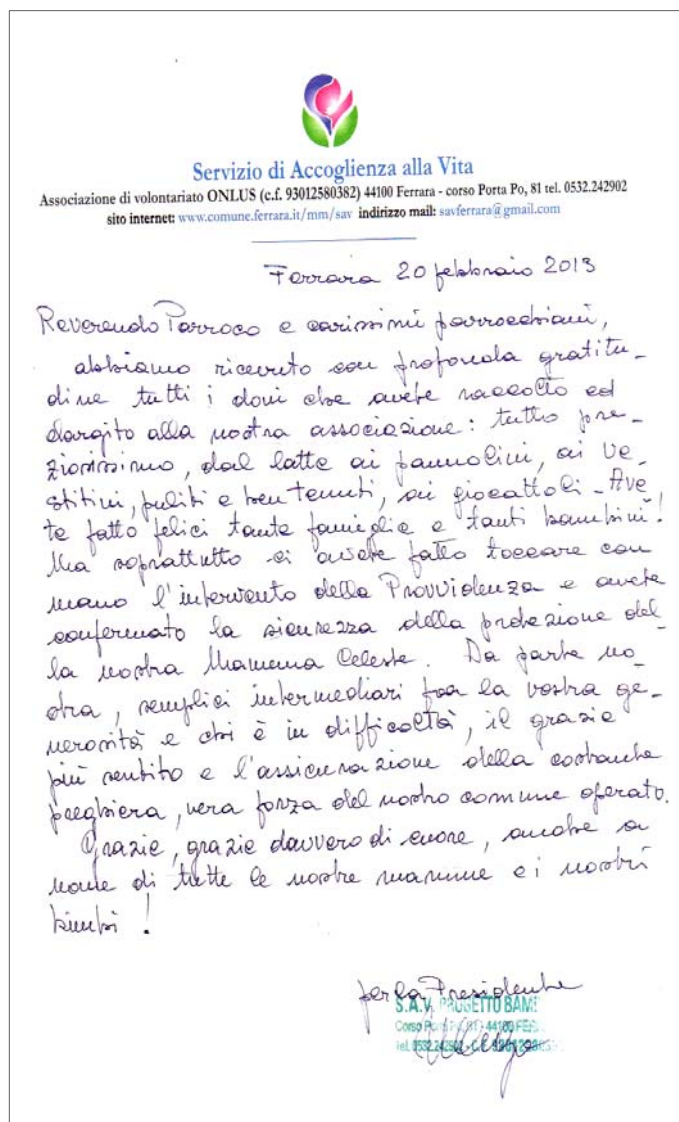 Servizio di Accoglienza alla Vita
Associazione di volontariato ONLUS (c.f. 93012580382) 44100 Ferrara - corso Porta Po, 81 tel. 0532.242902
sito internet: www.comune.ferrara.it/mm/sav indirizzo mail: savferrara@gmail.com
Ferrara 20 febbraio 2013
Reverendo Parroco e carissimi parrocchiani,
abbiamo ricevuto con profonda gratitu-
dine tutti i doni che avete raccolto ed
elargito alla nostra associazione: tutto pre-
ziosissimo, dal latte ai pannolini, ai ve-
stitini, puliti e ben tenuti, ai giocattoli - Ave-
te fatto felici tante famiglie e tanti bambini!
Ma soprattutto ci avete fatto toccare con
mano l'intervento della Provvidenza e avete
confermato la sicurezza della protezione del-
la nostra Mamma Celeste. Da parte no-
stra, semplici intermediari fra la vostra ge-
nerosità e chi è in difficoltà, il grazie
più sentito e l'assicurazione della costante
preghiera, vera forza del nostro comune operato.
Grazie, grazie davvero di cuore, anche a
nome di tutte le nostre mamme e i nostri
bimbi!
per la Presidente
S.A.V. PROGETTO
Corso
Tel. 0532.242902